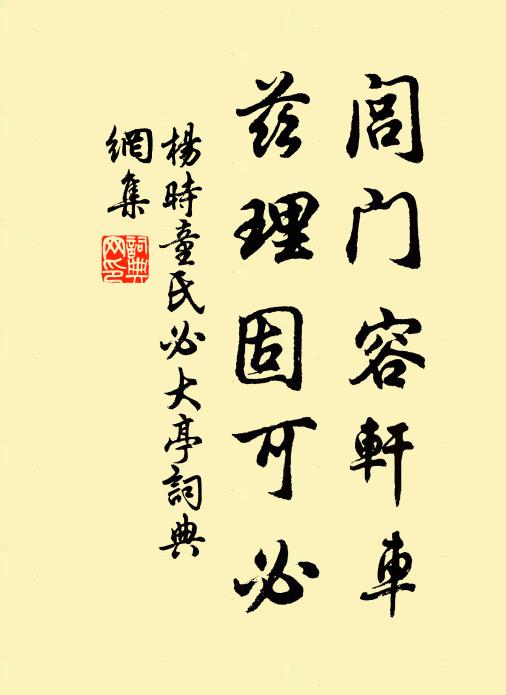 閭门容軒車
茲理固可必
楊時童氏必大亭詞典
網集
詞典网印